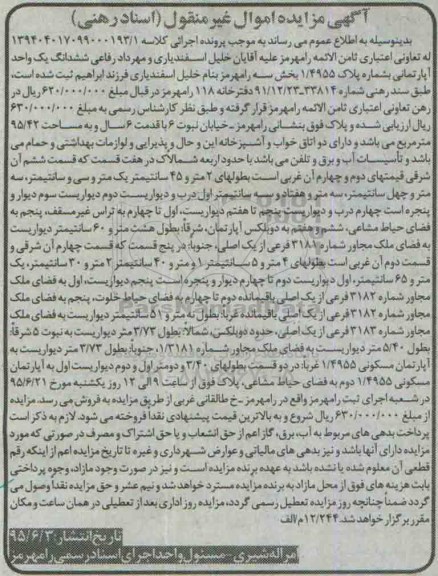 آگهی مزایده اموال غیر منقول (اسناد رهنی)
بدینوسیله به اطلاع عموم می رساند به موجب پرونده اجرائی کلاسه ۱۳۹۴۰۴۰۱۷۰۹۹۰۰۰۱۹۳/۱
له تعاونی اعتباری ثامن الائمه رامهرمز علیه آقایان خلیل اسفندیاری و مهرداد رفاعی ششدانگ یک واحد
آپارتمانی بشماره پلاک ۱/۴۹۵۵ بخش سه رامهرمز بنام خلیل اسفندیاری فرزند ابراهیم ثبت شده است،
طبق سند رهنی شماره ۳۳۸۱۴-۹۱/۱۲/۲۳ دفترخانه ۱۱۸ رامهرمز در قبال مبلغ ۶۲۰/۰۰۰/۰۰۰ ریال در
رهن تعاونی اعتباری ثامن الائمه رامهرمز قرار گرفته و طبق نظر کارشناس رسمی به مبلغ ۶۳۰/۰۰۰/۰۰۰
ریال ارزیابی شده و پلاک فوق بنشانی رامهرمز ـ خیابان نبوت ۶ با قدمت ۶ سال و به مساحت ۹۵/۴۲
مترمربع می باشد و دارای دو اتاق خواب و آشپزخانه این و حال و پذیرایی و لوازمات بهداشتی و حمام می
باشد و تأسیسات آب و برق و تلفن می باشد با حدود اربعه شمالاً که در هفت قسمت که قسمت ششم آن
شرقی قیمتهای دوم و چهارم آن غربی است بطولهای ۲ متر و ۴۵ سانتیمتر یک متر و سی و سانتیمتر، سه
متر و چهل سانتیمتر، سه متر و هفتاد و سه سانتیمتر اول درب و دیواریست دوم دیواریست سوم دیوار و
پنجره است چهارم درب و دیواریست پنجم تا هفتم دیواریست، اول تا چهارم به تراس غیرمسقف، پنجم به
فضای حیاط مشاعی، ششم و هفتم به دوبلکس آپارتمان، شرقاً: بطول هشت متر و ۶۰ سانتیمتر دیواریست
به فضای ملک مجاور شماره ۳۱۸۱ فرعی از یک اصلی، جنوباً: در پنج قسمت که قسمت چهارم آن شرقی و
قسمت دوم آن غربی است بطولهای ۴ متر و ۵ سانتیمتر ۱ و متر و ۴۰ سانتیمتر ۲ متر و ۳۰ سانتیمتر، یک
متر و ۶۵ سانتیمتر، اول دیواریست دوم تا چهارم دیوار و پنجره است پنجم دیواریست، اول به فضای ملک
مجاور شماره ۳۱۸۲ فرعی از یک اصلی باقیمانده دوم تا چهارم به فضای حیاط خلوت، پنجم به فضای ملک
مجاور شماره ۳۱۸۲ فرعی از یک اصلی باقیمانده غرباً: بطول نه متر و ۵۱ سانتیمتر دیواریست به فضای ملک
مجاور شماره ۳۱۸۳ فرعی از یک اصلی، حدود دوبلکس، شمالاً: بطول ۳/۷۳ متر دیواریست به نبوت ۵ شرقاً:
بطول ۵/۴۰ متر دیواریست به فضای ملک مجاور شماره ۱/۳۱۸۱، جنوباً: بطول ۳/۷۳ متر دیواریست به
آپارتمان مسکونی ۱/۴۹۵۵ غرباً: در دو قسمت بطولهای ۳/۴۰ و دو متر اول و دوم دیواریست اول به آپارتمان
مسکونی ۱/۴۹۵۵ دوم به فضای حیاط مشاعی، پلاک فوق از ساعت ۹ الی ۱۲ روز یکشنبه مورخ ۹۵/۶/۲۱
در شعبه اجرای ثبت رامهرمز واقع در رامهرمز ـ خ طالقانی غربی از طریق مزایده به فروش می رسد. مزایده
از مبلغ ۶۳۰/۰۰۰/۰۰۰ ریال شروع و به بالاترین قیمت پیشنهادی نقداً فروخته می شود. لازم به ذکر است
پرداخت بدهی های مربوط به آب، برق، گاز اعم از حق انشعاب و یا حق اشتراک و مصرف در صورتی که مورد
مزایده دارای آنها باشد و نیز بدهی های مالیاتی و عوارض شهرداری و غیره تا تاریخ مزایده اعم از اینکه رقم
قطعی آن معلوم شده یا نشده باشد به عهده برنده مزایده است و نیز در صورت وجود مازاد، وجوه پرداختی
بابت هزینه های فوق از محل مازاد به برنده مزایده مسترد خواهد شد و نیم عشر و حق مزایده نقداً وصول می
گردد ضمناً چنانچه روز مزایده تعطیل رسمی گردد، مزایده روز اداری بعد از تعطیلی در همان ساعت و مکان
مقرر برگزار خواهد شد. ۱۲/۲۴۴/م الف
تاریخ انتشار: ۹۵/۶/۳
امراله شیری – مسئول واحد اجرای اسناد رسمی رامهرمز